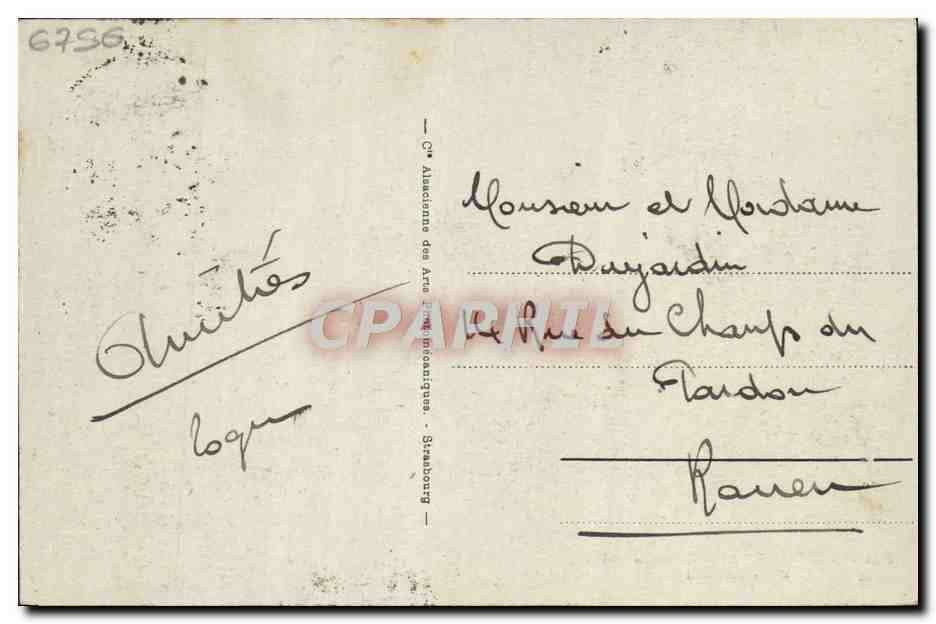 6796
Amitiés
— Cie Alsacienne des Arts Photomécaniques. - Strasbourg —
CPAPHIL
Monsieur et Madame
Dujardin
14 Rue du Champ du
Pardon
Rouen